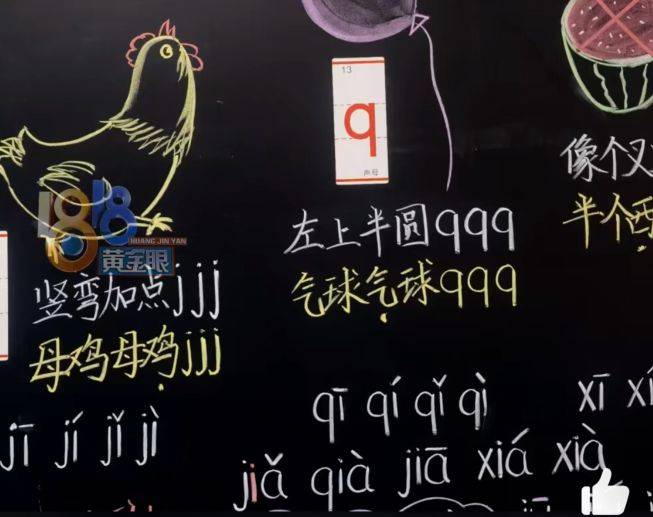 13
q
声母
1818
HUANG JIN YAN
黄金眼
竖弯加点jjj
母鸡母鸡jjj
左上半圆qqq
气球气球qqq
像个叉
半个西
jī jí jǐ jì
qī qí qǐ qì
xī xí
jiǎ qià jiā xiá xià